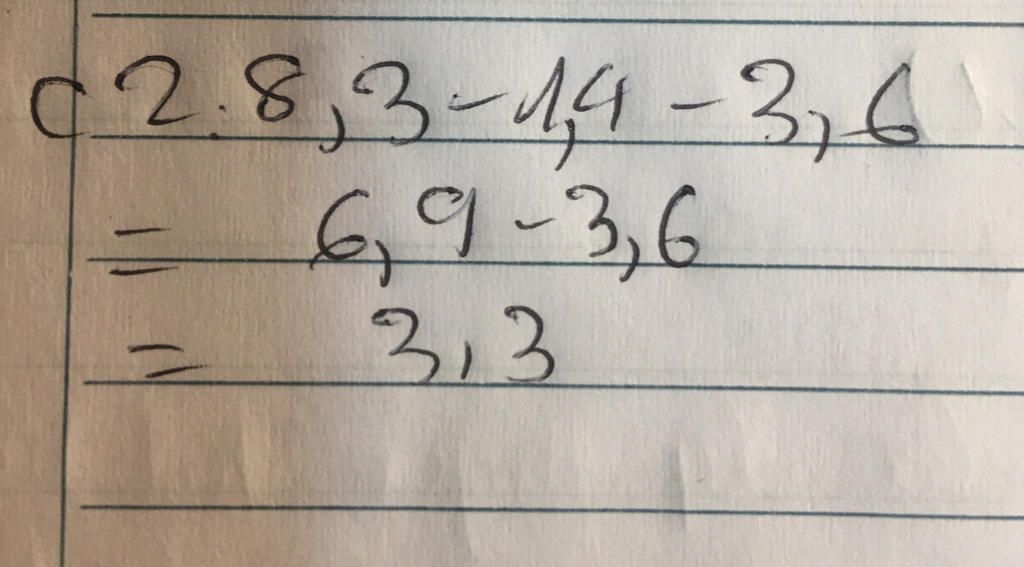 c 2. 8,3 - 1,4 - 3,6
= 6,9 - 3,6
= 3,3